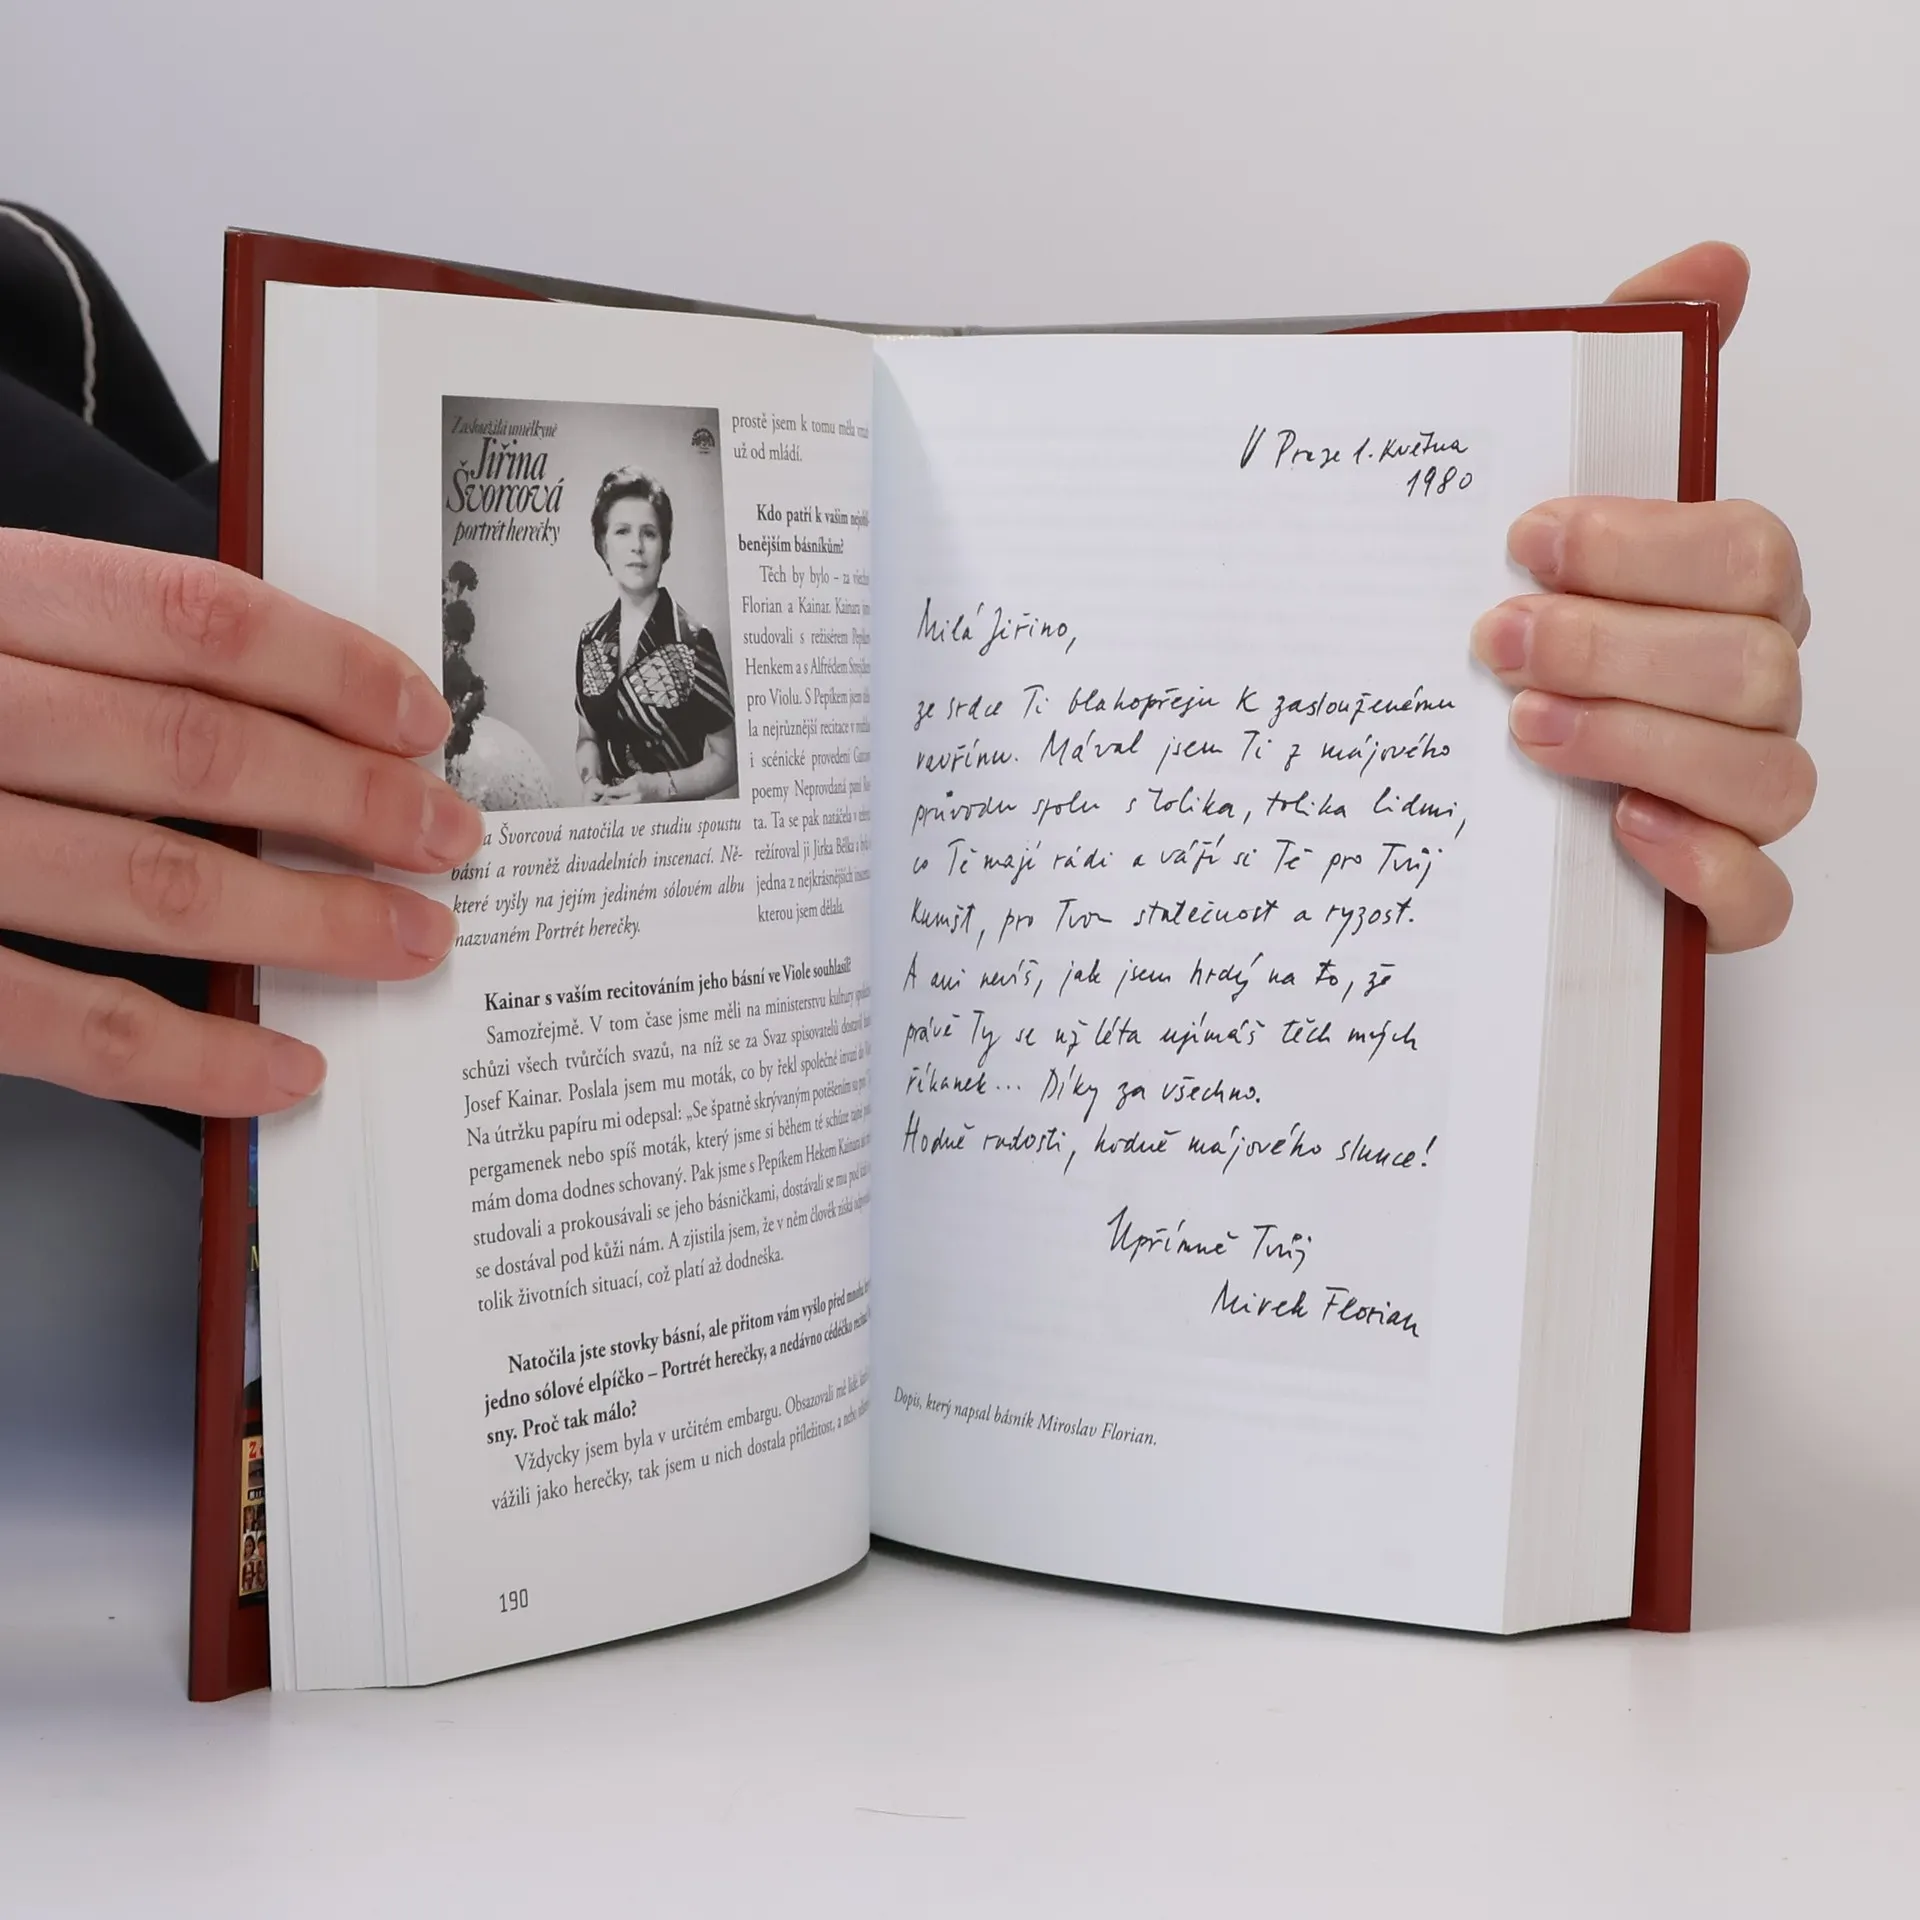 Zasloužilá umělkyně
Jiřina
Švorcová
portrét herečky
a Švorcová natočila ve studiu spoustu
básní a rovněž divadelních inscenací. Ně-
které vyšly na jejím jediném sólovém albu
nazvaném Portrét herečky.
prostě jsem k tomu měla
už od mládí.
Kdo patří k vašim
benějším básníkům?
Těch by bylo – za
Florian a Kainar. Kainara
studovali s režisérem
Henkem a s Alfrédem
pro Violu. S Pepíkem jsem
la nejrůznější recitace v
i scénické provedení
poemy Neprovdaná paní
ta. Ta se pak natáčela v
režíroval ji Jirka Bělka a
jedna z nejkrásnějších
kterou jsem dělala.
Kainar s vaším recitováním jeho básní ve Viole souhlasil?
Samozřejmě. V tom čase jsme měli na ministerstvu kultury
schůzi všech tvůrčích svazů, na níž se za Svaz spisovatelů dostavil
Josef Kainar. Poslala jsem mu moták, co by řekl společné invazi do
Na útržku papíru mi odepsal: „Se špatně skrývaným potěšením
pergamenek nebo spíš moták, který jsme si během té schůze
mám doma dodnes schovaný. Pak jsme s Pepíkem Hekem Kainara
studovali a prokousávali se jeho básničkami, dostávali se mu pod
se dostával pod kůži nám. A zjistila jsem, že v něm člověk získá
tolik životních situací, což platí až dodneška.
Natočila jste stovky básní, ale přitom vám vyšlo před mnoha
jedno sólové elpíčko – Portrét herečky, a nedávno cédéčko
sny. Proč tak málo?
Vždycky jsem byla v určitém embargu. Obsazovali mě lidé,
vážili jako herečky, tak jsem u nich dostala příležitost, a nebo
190
V Praze 1. května
1980
Milá Jiřino,
ze srdce Ti blahopřeju k zaslouženému
vavřínu. Mával jsem Ti z májového
průvodu spolu s tolika, tolika lidmi,
co Tě mají rádi a váží si Tě pro Tvůj
kumšt, pro Tvou statečnost a ryzost.
A ani nevíš, jak jsem hrdý na to, že
právě Ty se už léta ujímáš těch mých
říkanek... Díky za všechno.
Hodně radosti, hodně májového slunce!
Upřímně Tvůj
Mirek Florian
Dopis, který napsal básník Miroslav Florian.